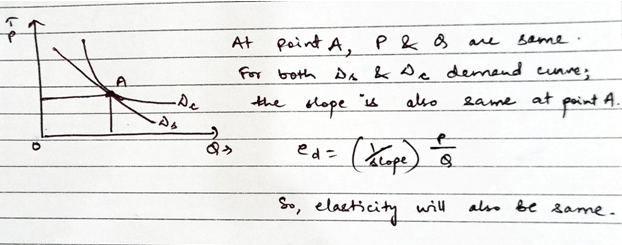 ↑
P
A
Dc
Ds
O
Q→
At point A, P & Q are same.
For both Ds & Dc demand curve;
the slope is also same at point A.
ed = (1/slope) P/Q
So, elasticity will also be same.